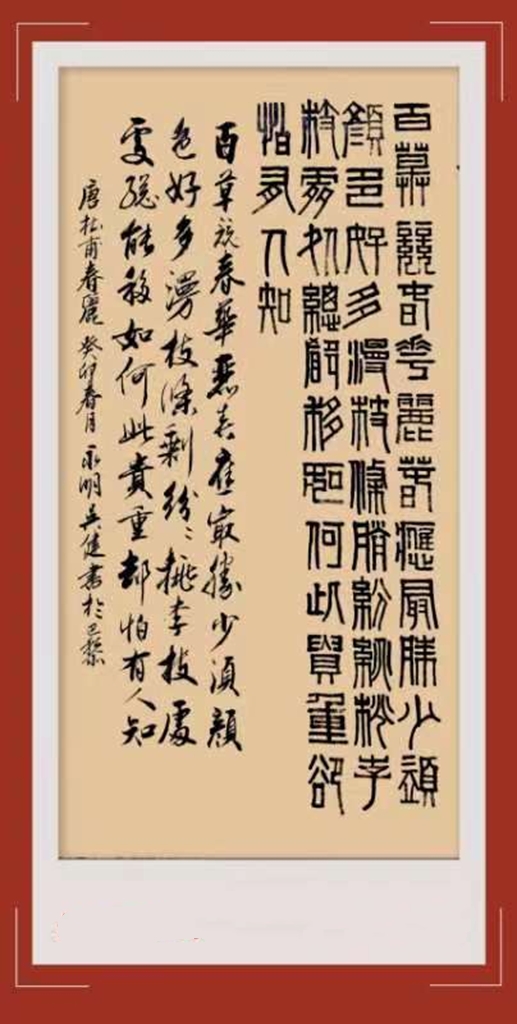 百草競春華麗春應最勝少須
顏色好多漫枝條勝紛紛桃李
枝處處總能移如何此貴重卻
怕有人知
百草競春華麗春應最勝少須顏
色好多漫枝條剩紛〻桃李枝處
處總能移如何此貴重卻怕有人知
唐杜甫春麗癸卯春月永明吳健書於巴黎